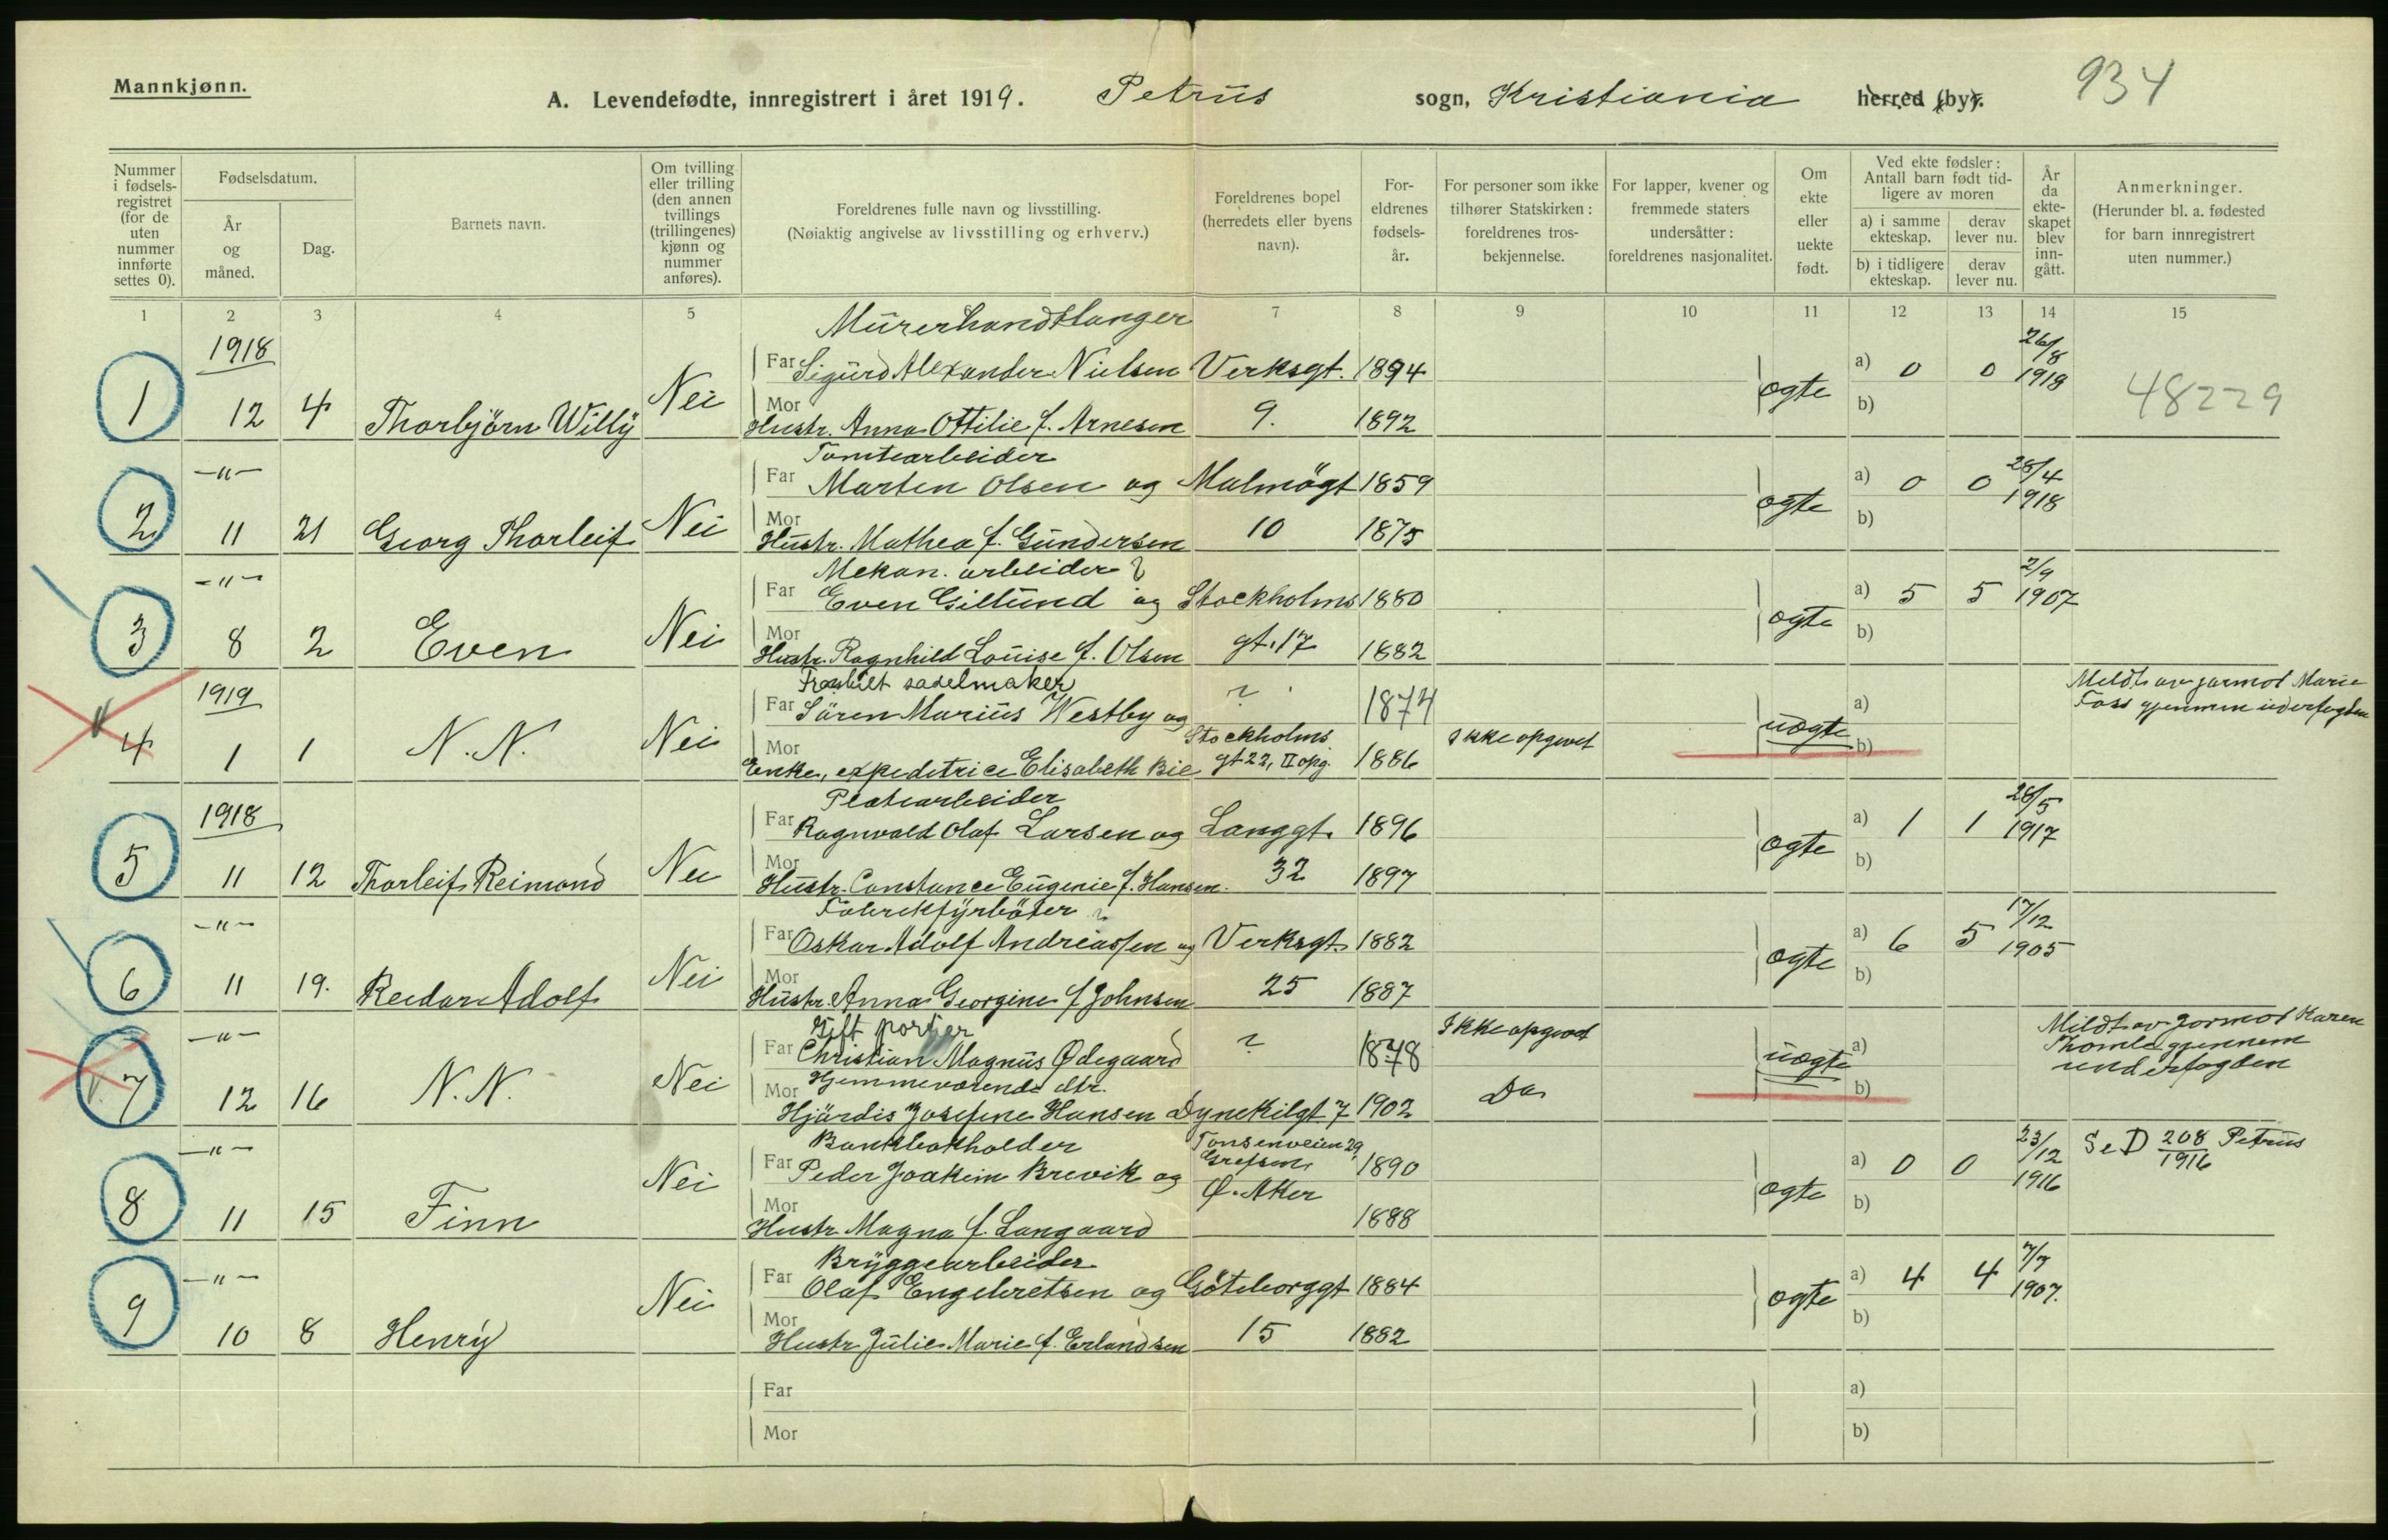 Mannkjønn.
A. Levendefødte, innregistrert i året 1919. Petrus sogn, Kristiania herred (by).
934
Nummer i fødselsregistret (for de uten nummer innførte settes 0).
Fødselsdatum.
År og måned.
Dag.
Barnets navn.
Om tvilling eller trilling (den annen tvillings (trillingenes) kjønn og nummer anføres).
Foreldrenes fulle navn og livsstilling.
(Nøiaktig angivelse av livsstilling og erhverv.)
Foreldrenes bopel (herredets eller byens navn).
Foreldrenes fødselsår.
For personer som ikke tilhører Statskirken: foreldrenes trosbekjennelse.
For lapper, kvener og fremmede staters undersåtter: foreldrenes nasjonalitet.
Om ekte eller uekte født.
Ved ekte fødsler: Antall barn født tidligere av moren
a) i samme ekteskap. derav lever nu.
b) i tidligere ekteskap. derav lever nu.
År da ekteskapet blev inngått.
Anmerkninger.
(Herunder bl. a. fødested for barn innregistrert uten nummer.)
1 2 3 4 5 7 8 9 10 11 12 13 14 15
Murerhandtlanger
1918 Far Sigurd Alexander Nielsen Verksgt. 1894 a) 0 0 26/8 1918
1 12 4 Thorbjörn Willy Nei Mor Hustr. Anna Ottilie f. Arnesen 9. 1892 ogte b) 48229
Tomtearbeider
-"- Far Marten Olsen og Malmögt 1859 a) 0 0 28/4 1918
2 11 21 Georg Thorleif Nei Mor Hustr. Mathea f. Gundersen 10 1875 ogte b)
Mekan. arbeider
-"- Far Even Gillund og Stockholms 1880 a) 5 5 2/9 1907
3 8 2 Even Nei Mor Hustr. Ragnhild Louise f. Olsen gt. 17 1882 ogte b)
Fraskilt sadelmaker
1919 Far Sören Marius Westby og ? 1874 a) Meldt av jormor Marie
Foss gjennem
4 1 1 N.N. Nei Mor Enke, expeditrice Elisabeth Bie Stockholms gt 22, II opg. 1886 Ikke opgivet uogte b)
Platearbeider
1918 Far Ragnvald Olaf Larsen og Langgt. 1896 a) 1 1 28/5 1917
5 11 12 Thorleif Reimond Nei Mor Hustr. Constance Eugenie f. Hansen. 32 1897 ogte b)
Fabrikfyrböter
-"- Far Oskar Adolf Andreassen og Verksgt. 1882 a) 6 5 17/12 1905
6 11 19. Reidar Adolf Nei Mor Hustr. Anna Georgine f Johnsen 25 1887 ogte b)
Gift portier
-"- Far Christian Magnus Ødegaard ? 1878 Ikke opgivet a) Meldt av jormor Karen
Thomle gjennem
underfogden
Hjemmeværende dtr.
7 12 16 N.N. Nei Mor Hjärdis Josefine Hansen Dynekilgt 7 1902 Do uogte b)
Bankbokholder
-"- Far Peder Joakim Brevik og Tonsenveien 29, Grefsen, 1890 a) 0 0 23/12 1916 Se D 208/1916 Petrus
8 11 15 Finn Nei Mor Hustr Magna f. Langaard Ø. Aker 1888 ogte b)
Bryggearbeider
-"- Far Olaf Engebretsen og Göteborggt 1884 a) 4 4 7/7 1907.
9 10 8 Henry Nei Mor Hustr Julie Marie f. Erlandsen 15 1882 ogte b)
Far a)
Mor b)